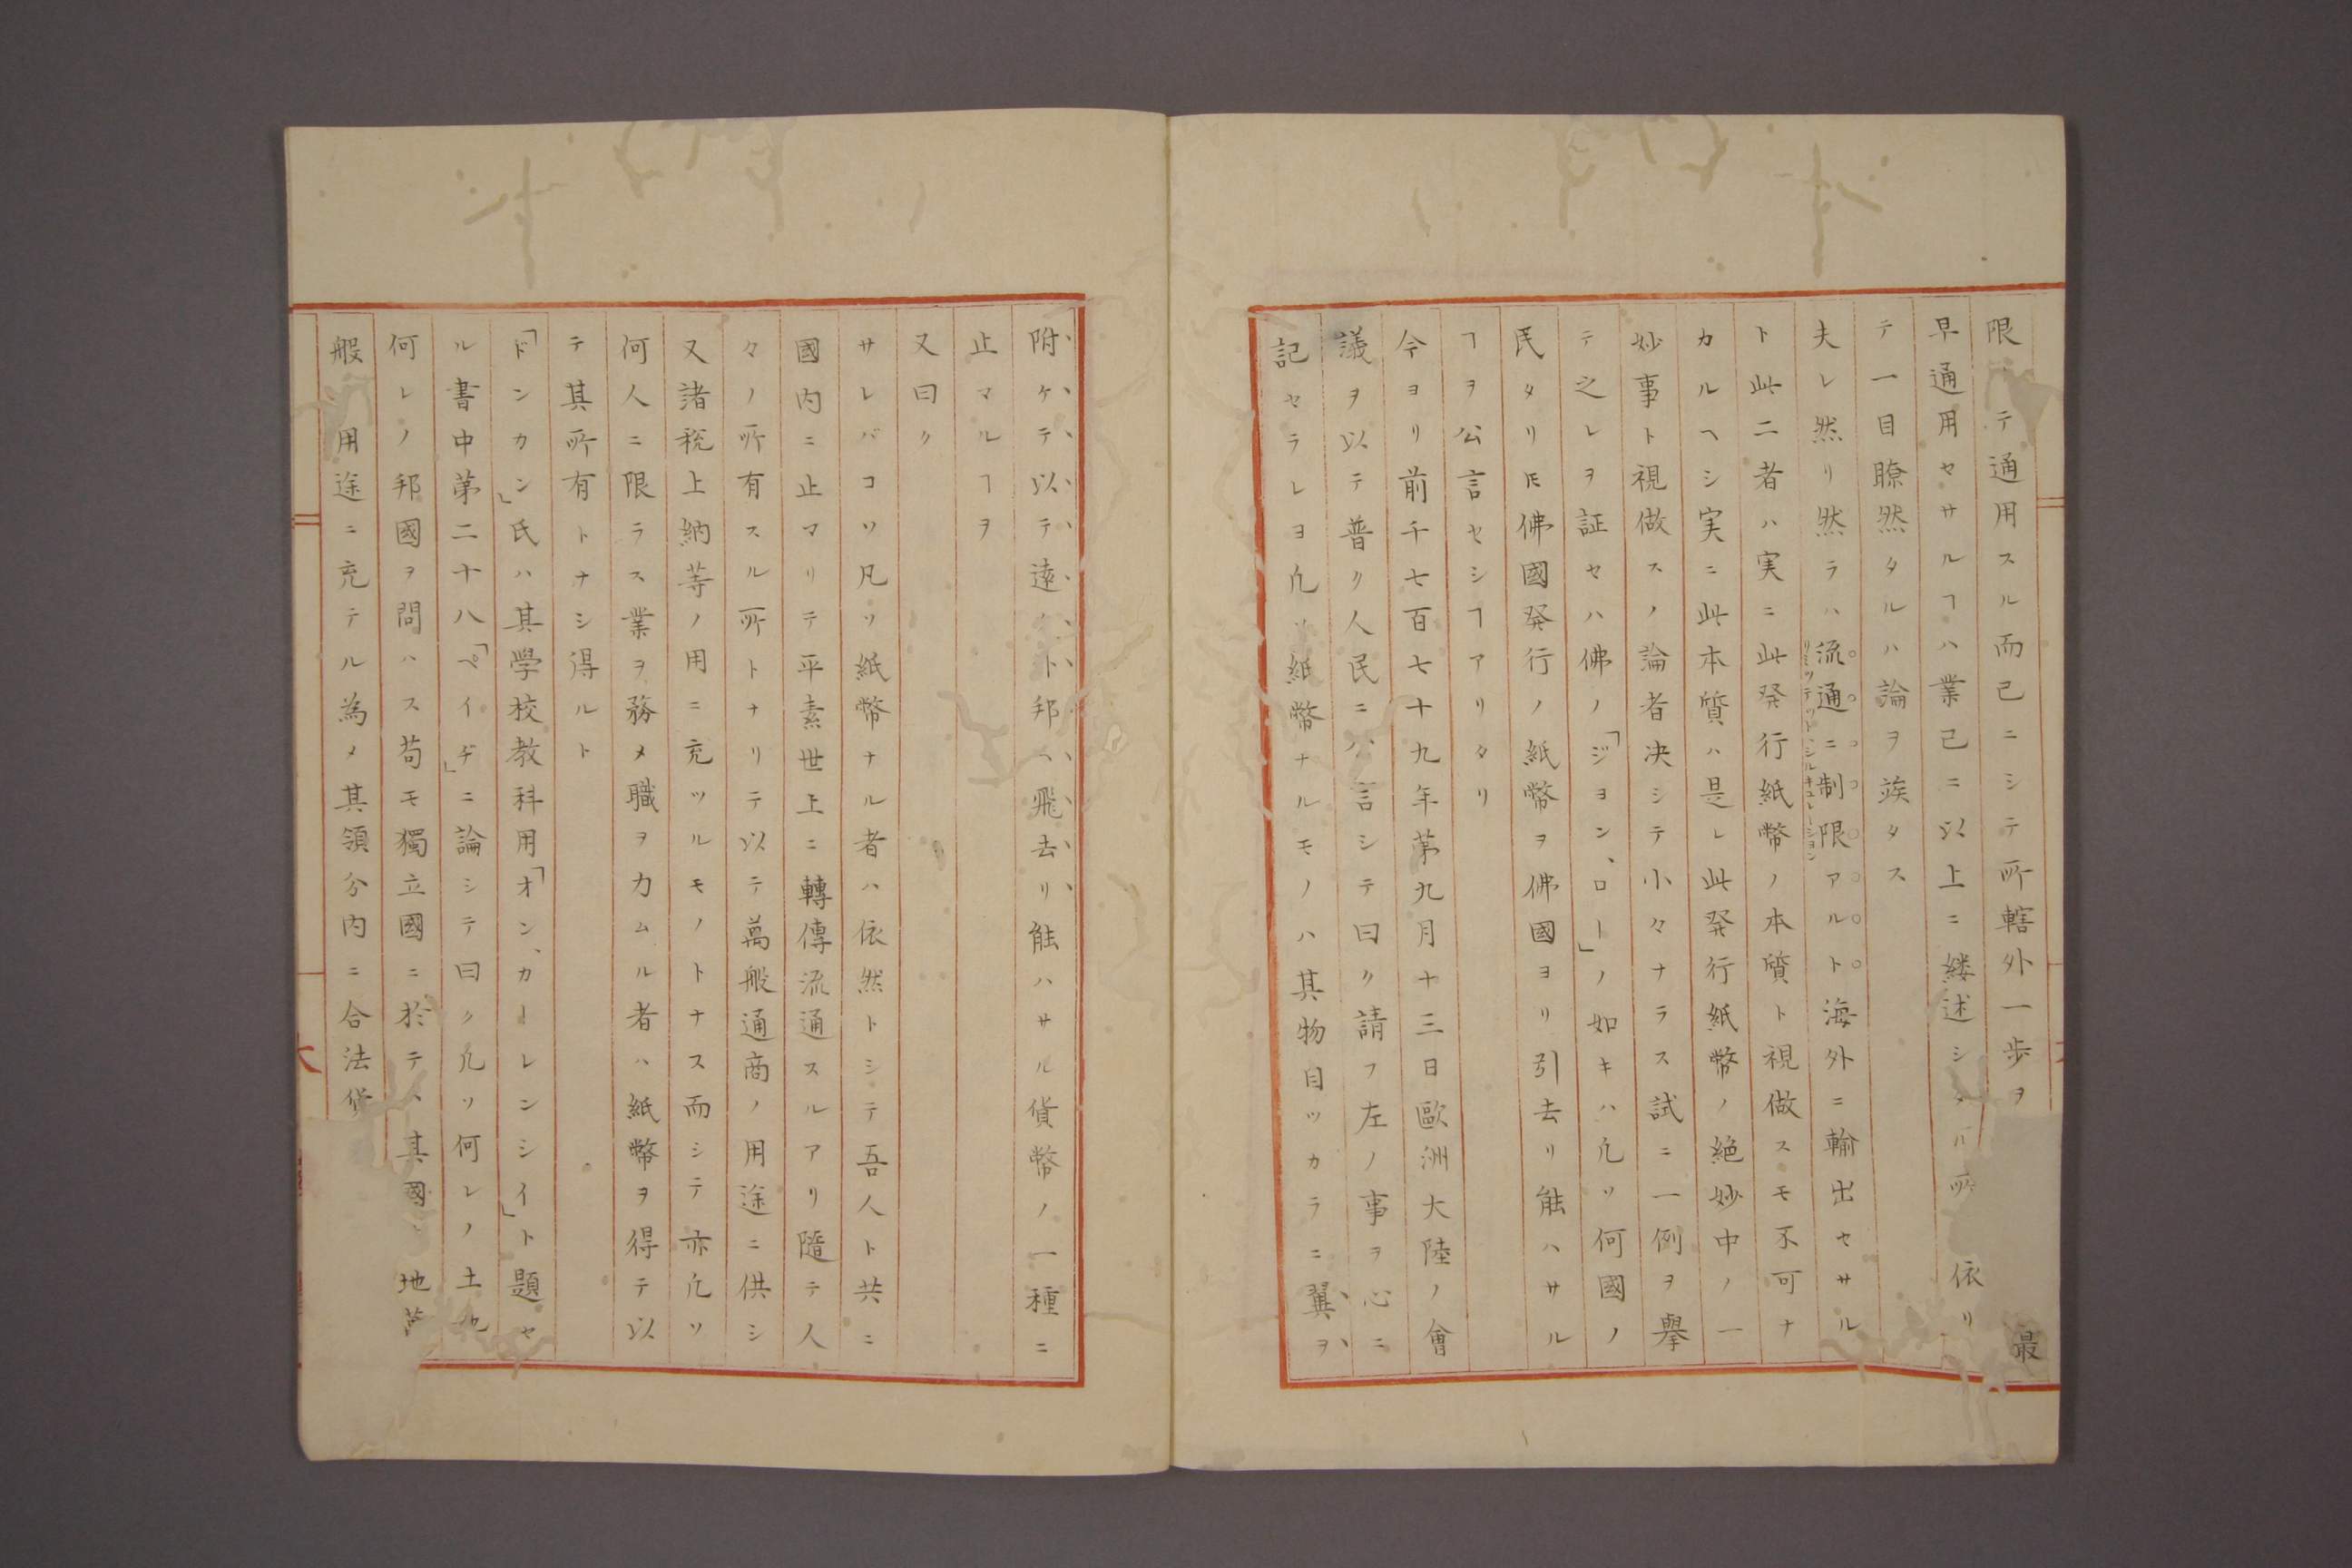 限 テ通用スル而已ニシテ所轄外一歩ヲ 最
早通用セサルヿハ業已ニ以上ニ縷述シタル所 依リ
テ一目瞭然タルハ論ヲ竢タス
夫レ然リ然ラハ流通ニ制限アルト海外ニ輸出セサル
リミツテッド、シルキュレーション
ト此二者ハ実ニ此発行紙幣ノ本質ト視做スモ不可ナ
カルヘシ実ニ此本質ハ是レ此発行紙幣ノ絶妙中ノ一
妙事ト視做スノ論者决シテ小々ナラス試ニ一例ヲ擧
テ之レヲ証セハ佛ノ「ジヨン、ロー」ノ如キハ凢ソ何國ノ
民タリ𪜈佛國発行ノ紙幣ヲ佛國ヨリ引去リ能ハサル
ヿヲ公言セシヿアリタリ
今ヨリ前千七百七十九年苐九月十三日歐洲大陸ノ會
議ヲ以テ普ク人民ニ公言シテ曰ク請フ左ノ事ヲ心ニ
記セラレヨ凢ソ紙幣ナルモノハ其物自ツカラニ翼ヲ
附ケテ以テ遠ク ト邦ヘ飛去リ能ハサル貨幣ノ一種ニ
止マルヿヲ
又曰ク
サレバコソ凡ソ紙幣ナル者ハ依然トシテ吾人ト共ニ
國内ニ止マリテ平素世上ニ轉傳流通スルアリ隨テ人
々ノ所有スル所トナリテ以テ萬般通商ノ用途ニ供シ
又諸税上納等ノ用ニ充ツルモノトナス而シテ亦凢ソ
何人ニ限ラス業ヲ務メ職ヲカムル者ハ紙幣ヲ得テ以
テ其所有トナシ得ルト
「ドンカン」氏ハ其學校教科用「オン、カーレンシイ」ト題セ
ル書中苐二十八「ペイヂ」ニ論シテ曰ク凢ソ何レノ土地
何レノ邦國ヲ問ハス苟モ獨立國ニ於テハ其國 地
般ノ用途ニ充テル為メ其領分内ニ合法貨